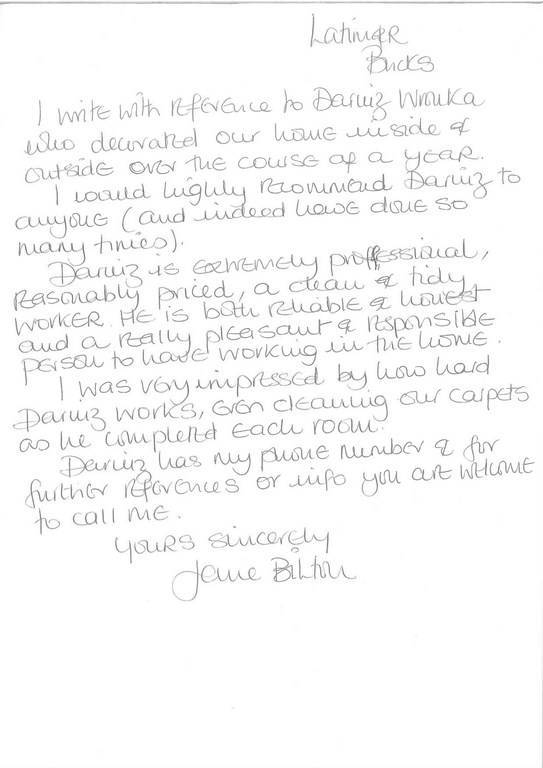 Latimer
Bucks
I write with reference to Dariuz Wnuka
who decorated our home inside &
outside over the course of a year.
I would highly recommend Dariuz to
anyone (and indeed have done so
many times).
Dariuz is extremely professional,
reasonably priced, a clean & tidy
worker. He is both reliable & honest
and a really pleasant & responsible
person to have working in the home.
I was very impressed by how hard
Dariuz works, even cleaning our carpets
as he completed each room.
Dariuz has my phone number & for
further references or info you are welcome
to call me.
Yours sincerely
Jane Bilton